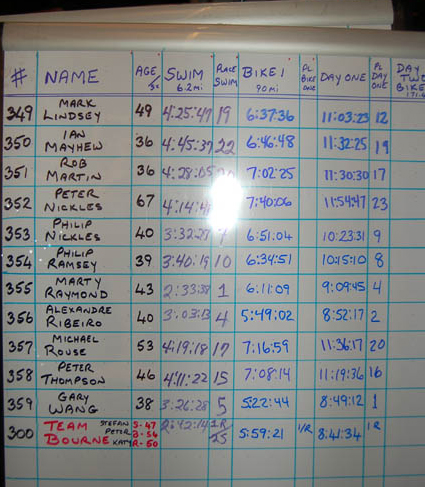 # NAME AGE SWIM 6.2mi PLACE SWIM BIKE 1 90mi PL BIKE ONE DAY ONE PL DAY ONE DAY TWO BIKE
349 MARK LINDSEY 49 4:25:47 19 6:37:36 11:03:23 12
350 IAN MAYHEW 36 4:45:37 22 6:46:48 11:32:25 19
351 ROB MARTIN 36 4:28:05 7:02:25 11:30:30 17
352 PETER NICKLES 67 7:40:06 11:54:47 23
353 PHILIP NICKLES 40 6:51:04 10:23:31 9
354 PHILIP RAMSEY 39 3:40:19 10 6:34:51 10:15:10 8
355 MARTY RAYMOND 43 2:33:38 1 6:11:09 9:09:45 4
356 ALEXANDRE RIBEIRO 40 3:03:13 4 5:49:02 8:52:17 2
357 MICHAEL ROUSE 53 4:19:18 17 7:16:59 11:36:17 20
358 PETER THOMPSON 46 4:11:22 15 7:08:14 11:19:36 16
359 GARY WANG 38 3:26:28 5 5:22:44 8:49:12 1
300 TEAM BOURNE STEFAN PETER KATY S-47 B-56 R-50 2:42:14 5:59:21 1/R 8:41:34 1R